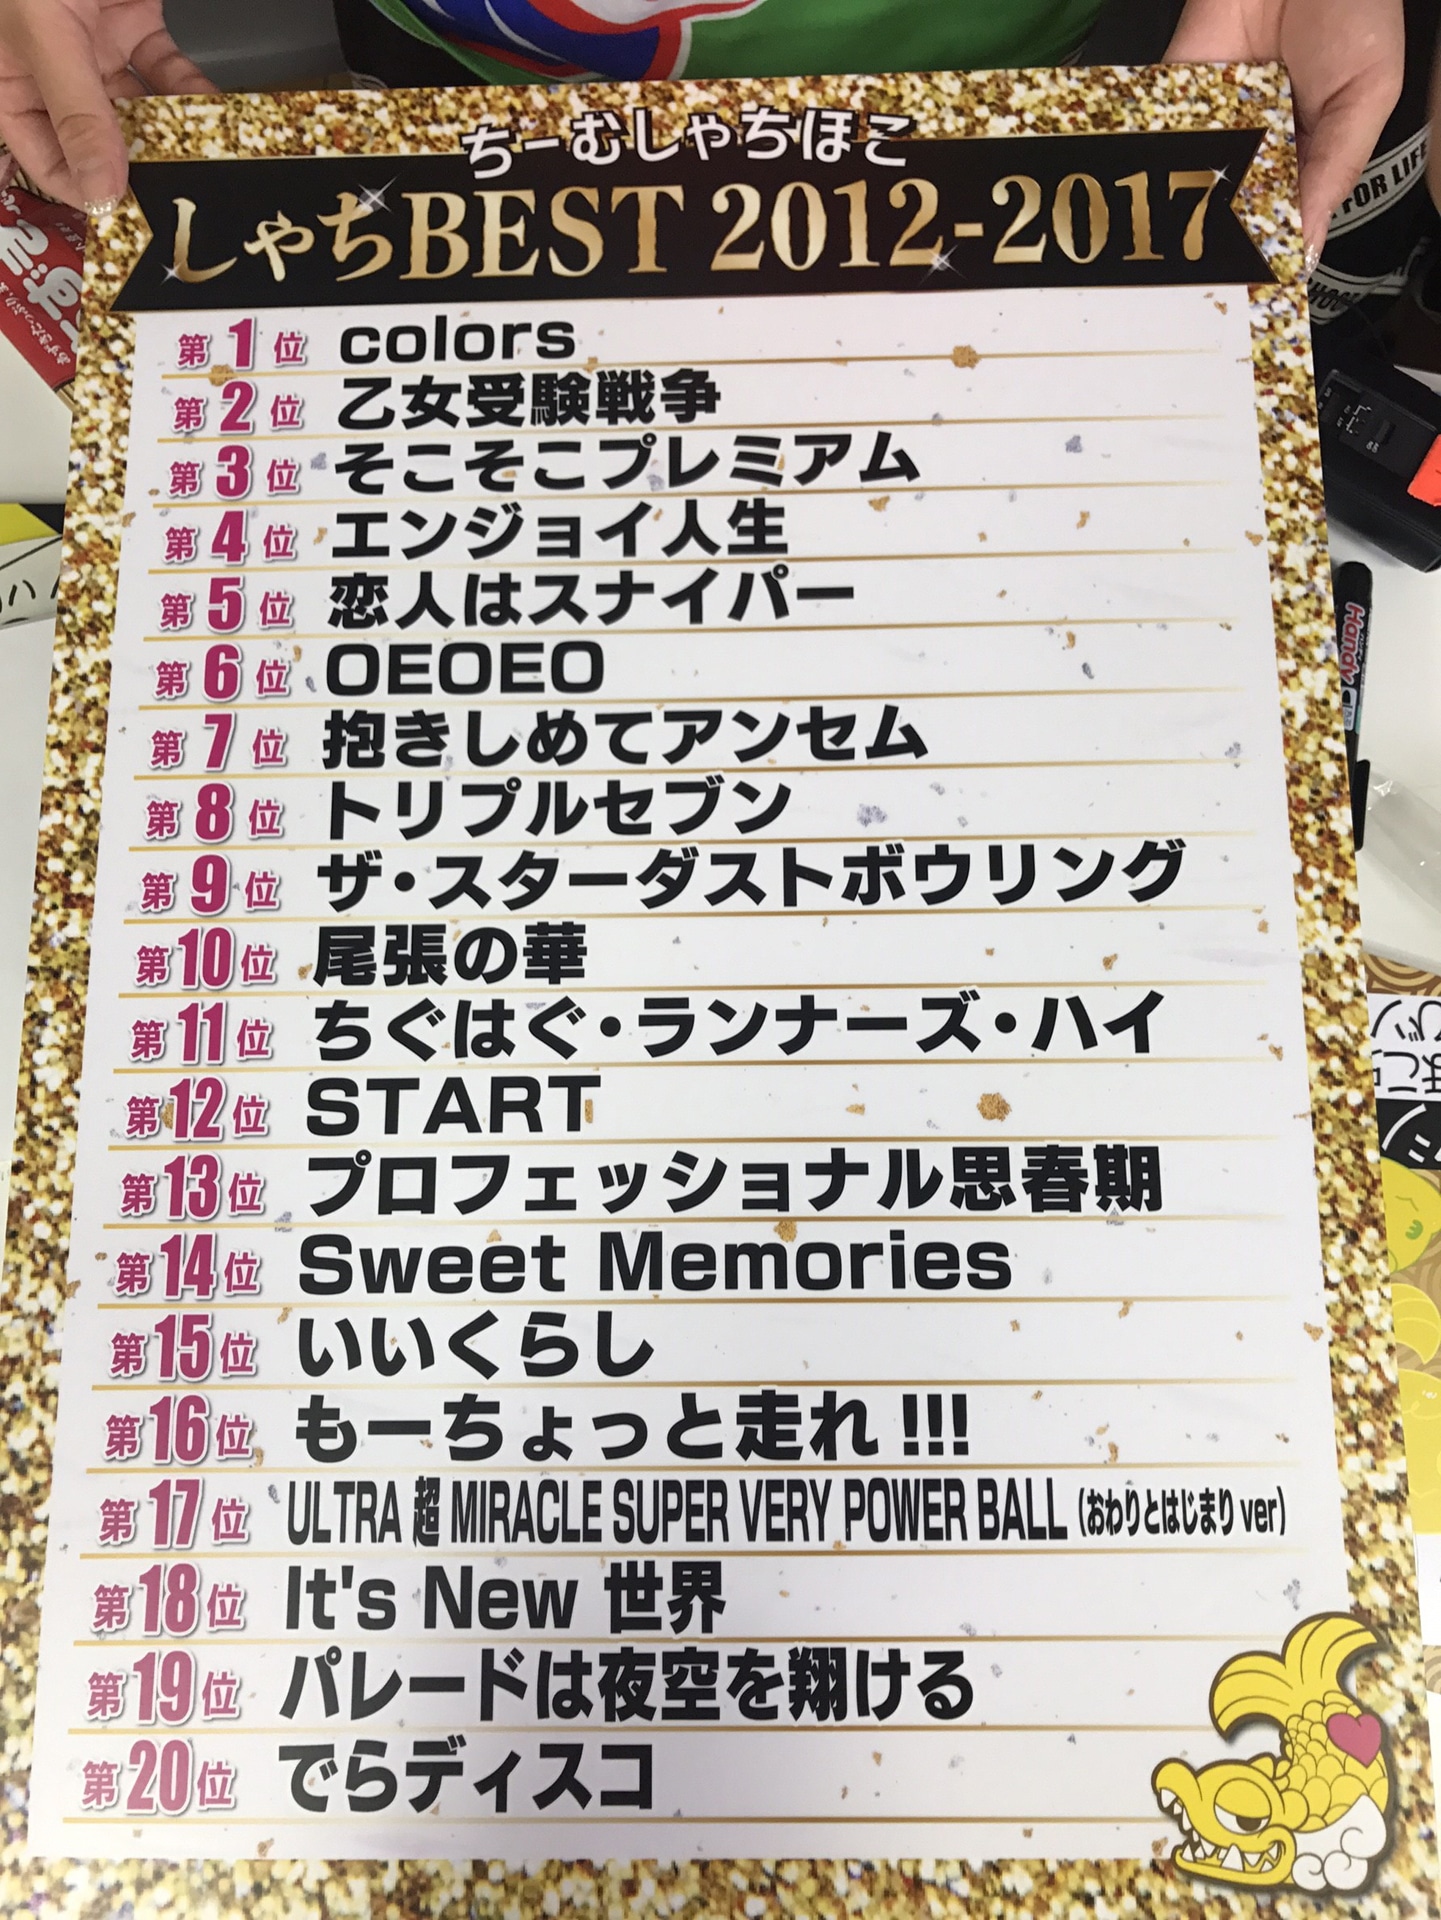 ちーむしゃちほこ
しゃちBEST 2012-2017
第1位 colors
第2位 乙女受験戦争
第3位 そこそこプレミアム
第4位 エンジョイ人生
第5位 恋人はスナイパー
第6位 OEOEO
第7位 抱きしめてアンセム
第8位 トリプルセブン
第9位 ザ・スターダストボウリング
第10位 尾張の華
第11位 ちぐはぐ・ランナーズ・ハイ
第12位 START
第13位 プロフェッショナル思春期
第14位 Sweet Memories
第15位 いいくらし
第16位 もーちょっと走れ!!!
第17位 ULTRA 超 MIRACLE SUPER VERY POWER BALL (おわりとはじまり ver)
第18位 It's New 世界
第19位 パレードは夜空を翔ける
第20位 でらディスコ
FOR LIFE
Handy